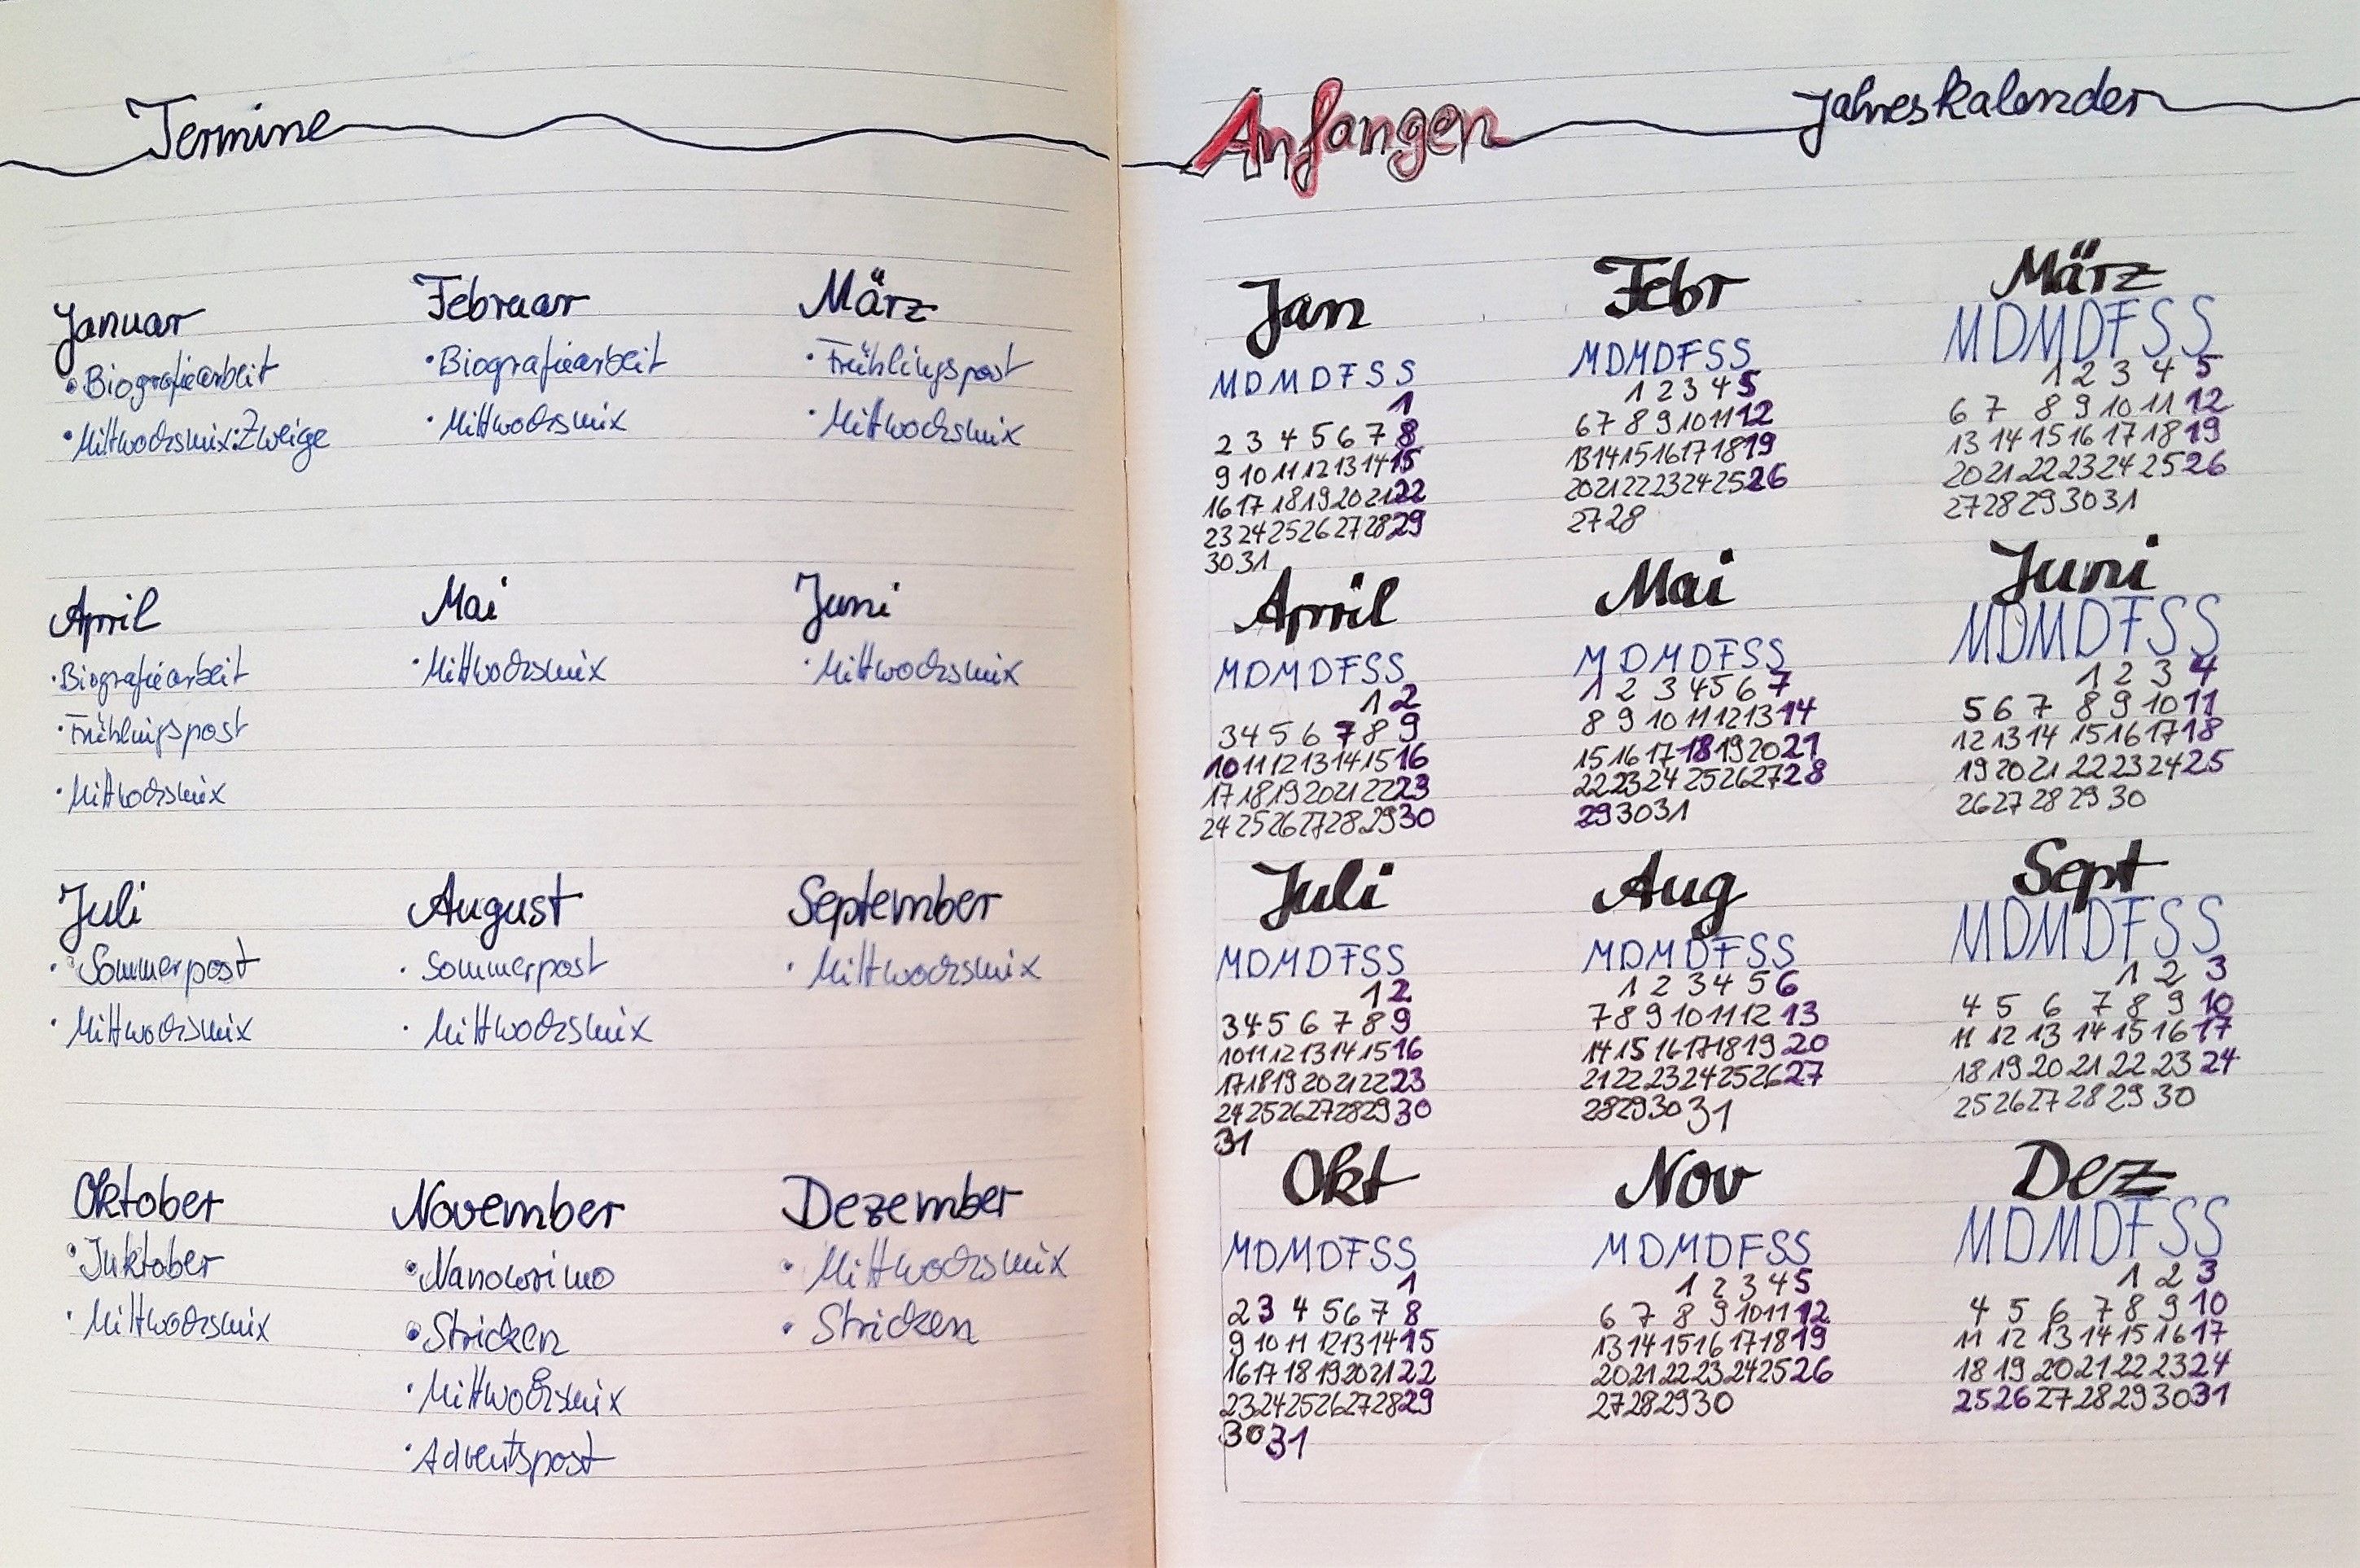 Termine
Januar
• Biografiearbeit
• Mittwochsmix: Zweige
Februar
• Biografiearbeit
• Mittwochsmix
März
• Frühlingspost
• Mittwochsmix
April
• Biografiearbeit
• Frühlingspost
• Mittwochsmix
Mai
• Mittwochsmix
Juni
• Mittwochsmix
Juli
• Sommerpost
• Mittwochsmix
August
• Sommerpost
• Mittwochsmix
September
• Mittwochsmix
Oktober
• Inktober
• Mittwochsmix
November
• Nanowrimo
• Stricken
• Mittwochsmix
• Adventspost
Dezember
• Mittwochsmix
• Stricken
Anfangen Jahreskalender
Jan
M D M D F S S
1
2 3 4 5 6 7 8
9 10 11 12 13 14 15
16 17 18 19 20 21 22
23 24 25 26 27 28 29
30 31
Febr
M D M D F S S
1 2 3 4 5
6 7 8 9 10 11 12
13 14 15 16 17 18 19
20 21 22 23 24 25 26
27 28
März
M D M D F S S
1 2 3 4 5
6 7 8 9 10 11 12
13 14 15 16 17 18 19
20 21 22 23 24 25 26
27 28 29 30 31
April
M D M D F S S
1 2
3 4 5 6 7 8 9
10 11 12 13 14 15 16
17 18 19 20 21 22 23
24 25 26 27 28 29 30
Mai
M D M D F S S
1 2 3 4 5 6 7
8 9 10 11 12 13 14
15 16 17 18 19 20 21
22 23 24 25 26 27 28
29 30 31
Juni
M D M D F S S
1 2 3 4
5 6 7 8 9 10 11
12 13 14 15 16 17 18
19 20 21 22 23 24 25
26 27 28 29 30
Juli
M D M D F S S
1 2
3 4 5 6 7 8 9
10 11 12 13 14 15 16
17 18 19 20 21 22 23
24 25 26 27 28 29 30
31
Aug
M D M D F S S
1 2 3 4 5 6
7 8 9 10 11 12 13
14 15 16 17 18 19 20
21 22 23 24 25 26 27
28 29 30 31
Sept
M D M D F S S
1 2 3
4 5 6 7 8 9 10
11 12 13 14 15 16 17
18 19 20 21 22 23 24
25 26 27 28 29 30
Okt
M D M D F S S
1
2 3 4 5 6 7 8
9 10 11 12 13 14 15
16 17 18 19 20 21 22
23 24 25 26 27 28 29
30 31
Nov
M D M D F S S
1 2 3 4 5
6 7 8 9 10 11 12
13 14 15 16 17 18 19
20 21 22 23 24 25 26
27 28 29 30
Dez
M D M D F S S
1 2 3
4 5 6 7 8 9 10
11 12 13 14 15 16 17
18 19 20 21 22 23 24
25 26 27 28 29 30 31